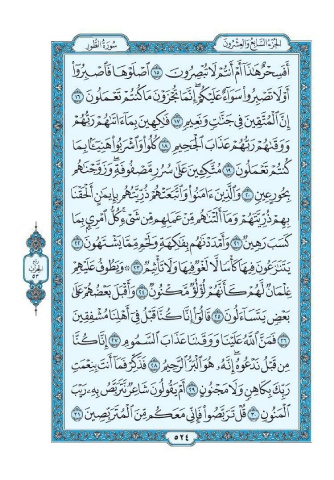 الجزء السابع والعشرون
سورة الطور
أَفَسِحْرٌ هَٰذَا أَمْ أَنتُمْ لَا تُبْصِرُونَ ۝١٥ اصْلَوْهَا فَاصْبِرُوا
أَوْ لَا تَصْبِرُوا سَوَاءٌ عَلَيْكُمْ إِنَّمَا تُجْزَوْنَ مَا كُنتُمْ تَعْمَلُونَ ۝١٦
إِنَّ الْمُتَّقِينَ فِي جَنَّاتٍ وَنَعِيمٍ ۝١٧ فَاكِهِينَ بِمَا آتَاهُمْ رَبُّهُمْ
وَوَقَاهُمْ رَبُّهُمْ عَذَابَ الْجَحِيمِ ۝١٨ كُلُوا وَاشْرَبُوا هَنِيئًا بِمَا
كُنتُمْ تَعْمَلُونَ ۝١٩ مُتَّكِئِينَ عَلَىٰ سُرُرٍ مَّصْفُوفَةٍ وَزَوَّجْنَاهُم
بِحُورٍ عِينٍ ۝٢٠ وَالَّذِينَ آمَنُوا وَاتَّبَعَتْهُمْ ذُرِّيَّتُهُم بِإِيمَانٍ أَلْحَقْنَا
بِهِمْ ذُرِّيَّتَهُمْ وَمَا أَلَتْنَاهُم مِّنْ عَمَلِهِم مِّن شَيْءٍ كُلُّ امْرِئٍ بِمَا
كَسَبَ رَهِينٌ ۝٢١ وَأَمْدَدْنَاهُم بِفَاكِهَةٍ وَلَحْمٍ مِّمَّا يَشْتَهُونَ ۝٢٢
يَتَنَازَعُونَ فِيهَا كَأْسًا لَّا لَغْوٌ فِيهَا وَلَا تَأْثِيمٌ ۝٢٣ وَيَطُوفُ عَلَيْهِمْ
غِلْمَانٌ لَّهُمْ كَأَنَّهُمْ لُؤْلُؤٌ مَّكْنُونٌ ۝٢٤ وَأَقْبَلَ بَعْضُهُمْ عَلَىٰ
بَعْضٍ يَتَسَاءَلُونَ ۝٢٥ قَالُوا إِنَّا كُنَّا قَبْلُ فِي أَهْلِنَا مُشْفِقِينَ
۝٢٦ فَمَنَّ اللَّهُ عَلَيْنَا وَوَقَانَا عَذَابَ السَّمُومِ ۝٢٧ إِنَّا كُنَّا
مِن قَبْلُ نَدْعُوهُ إِنَّهُ هُوَ الْبَرُّ الرَّحِيمُ ۝٢٨ فَذَكِّرْ فَمَا أَنتَ بِنِعْمَتِ
رَبِّكَ بِكَاهِنٍ وَلَا مَجْنُونٍ ۝٢٩ أَمْ يَقُولُونَ شَاعِرٌ نَّتَرَبَّصُ بِهِ رَيْبَ
الْمَنُونِ ۝٣٠ قُلْ تَرَبَّصُوا فَإِنِّي مَعَكُم مِّنَ الْمُتَرَبِّصِينَ ۝٣١
٥٢٤